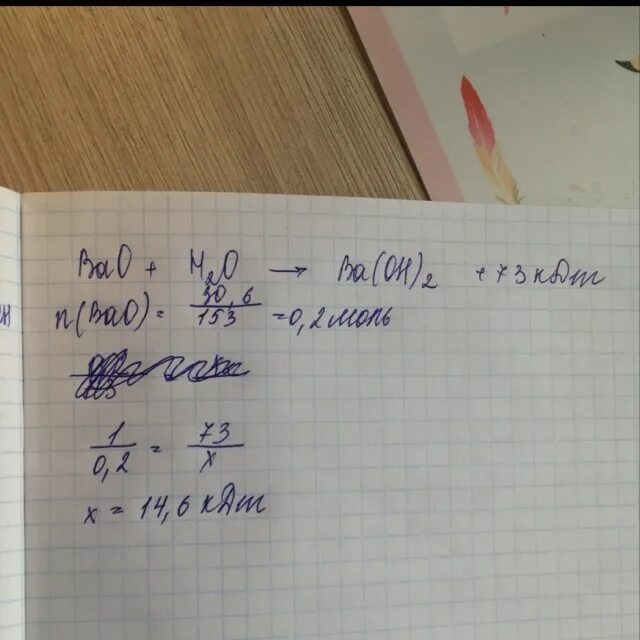 BaO + H₂O → Ba(OH)₂ + 73 кДж
n(BaO) = 30,6/153 = 0,2 моль
1/0,2 = 73/x
x = 14,6 кДж